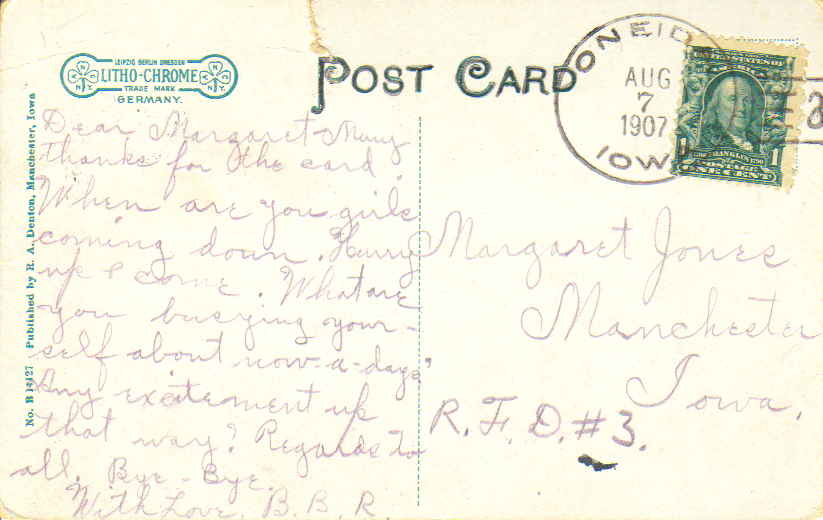 LEIPZIG BERLIN DRESDEN
LITHO-CHROME
TRADE MARK
GERMANY.
POST CARD
ONEID
AUG
7
1907
IOWA
UNITED STATES OF
FRANKLIN
POSTAGE
1 ONE CENT 1
No. B 14127 Published by R. A. Denton, Manchester, Iowa
Dear Margaret-Many
thanks for the card.
When are you girls
coming down. Hurry
up & come. What are
you busying your-
self about now-a-days?
Any excitement up
that way? Regards to
all. Bye-Bye.
With Love. B. B. R.
Margaret Jones
Manchester
Iowa.
R. F. D. #3.